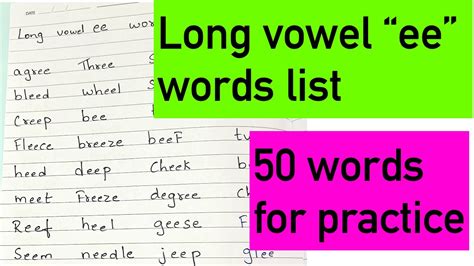 DATE
Long vowel ee
agree Three
bleed wheel
Creep bee
Fleece breeze beeF
heed deep Cheek
meet Freeze degree
Reef heel geese
Seem needle jeep glee
Long vowel “ee”
words list
50 words
for practice